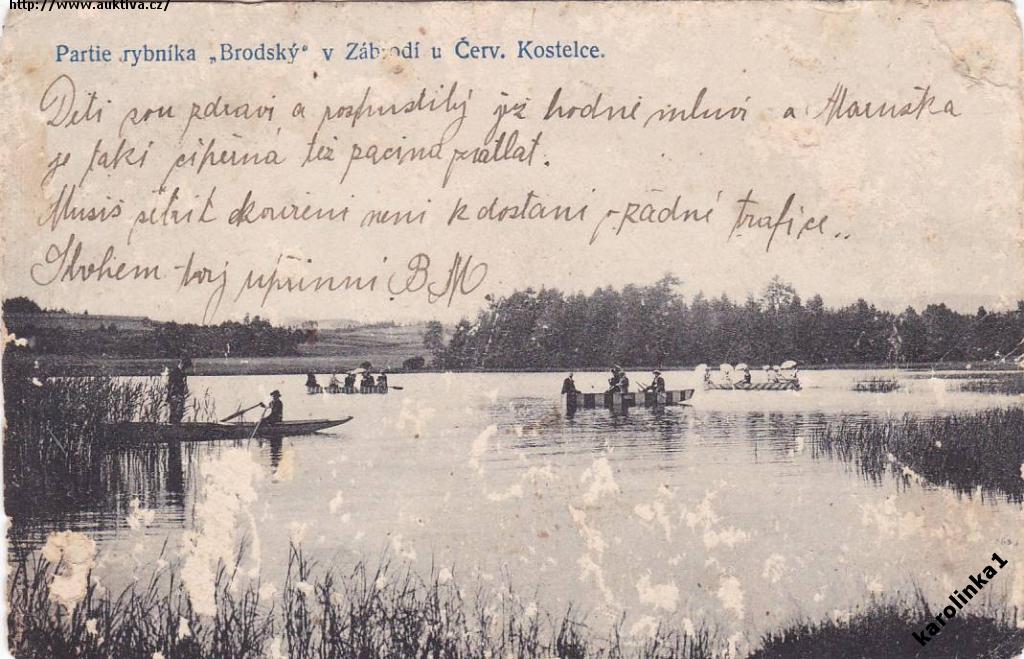 http://www.auktiva.cz/
Partie rybníka „Brodský“ v Zábrodí u Červ. Kostelce.
Děti sou zdravi a rospustilý již hodně mluví a Maruška
je taki čiperná též začina žvatlat.
Musiš šetřit kouřeni neni k dostani řádné trafice..
Sbohem tvoj upřimni B M
karolinka1